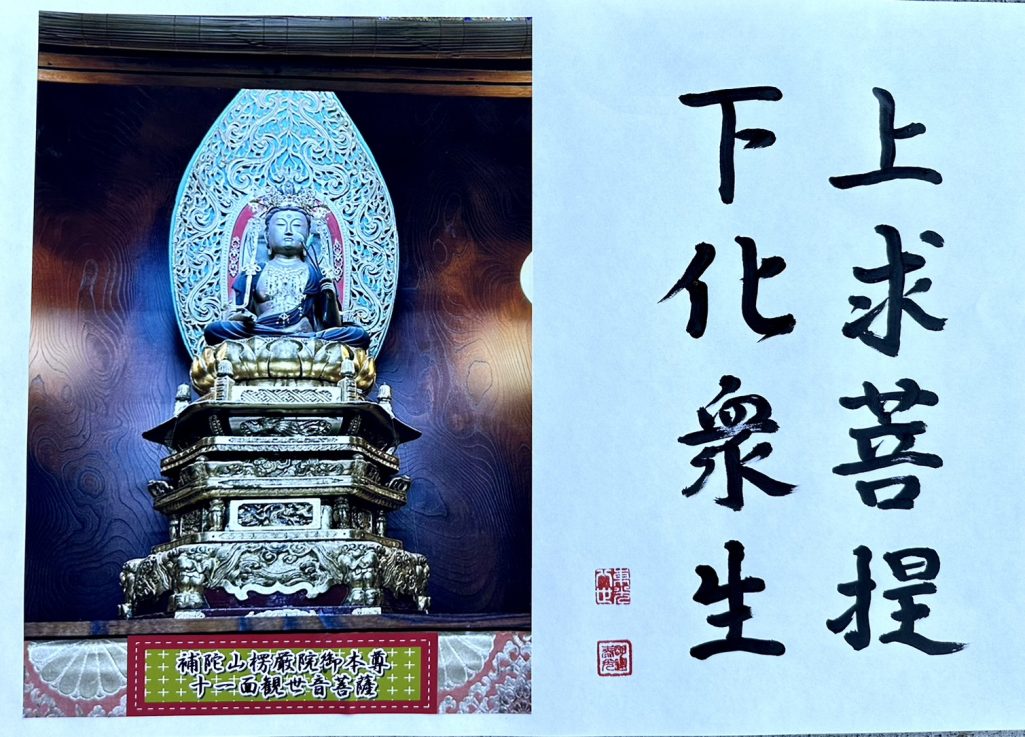 上求菩提
下化衆生
補陀山楞厳院御本尊
十一面観世音菩薩